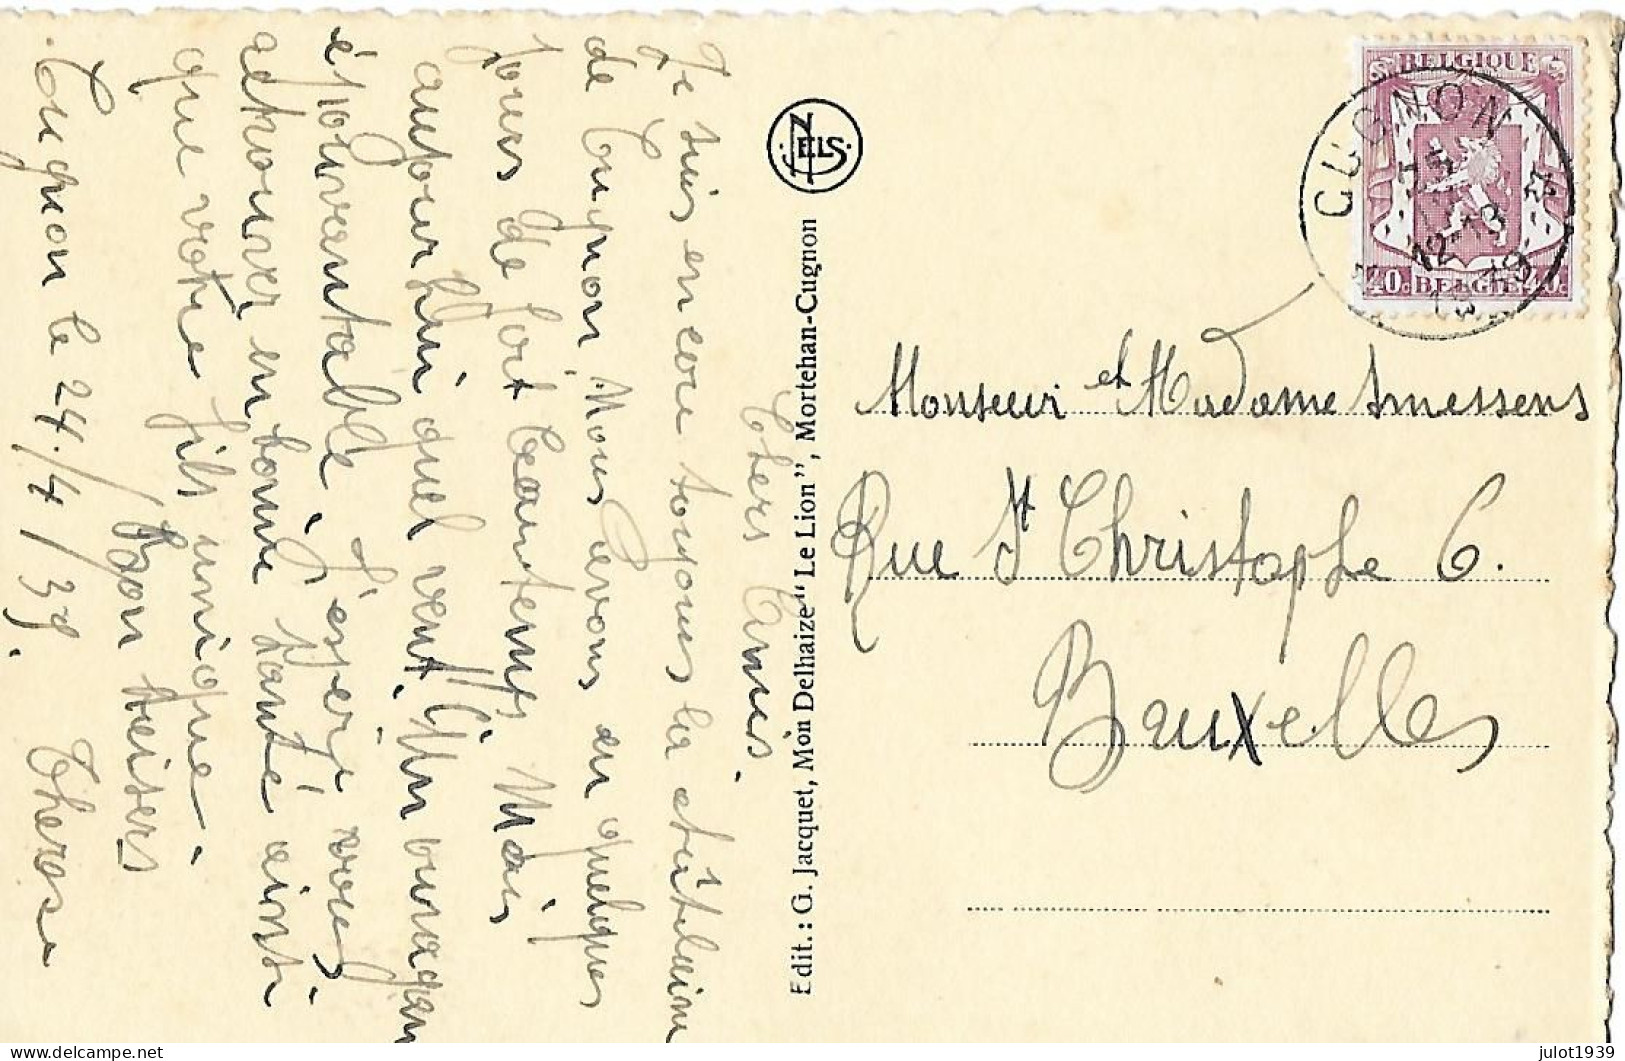 Chers Amis.
Je suis encore toujours la
de Cugnon Nous avons eu quelques
jours de fort beau temps Mais
aujourd'hui quel vent. Un ouragan
épouvantable. J'espère vous
retrouver en bonne santé ainsi
que votre fils unique.
Bon baisers
Cugnon le 24/4/39. Therese
NELS
Edit.: G. Jacquet, Mon Delhaize "Le Lion", Mortehan-Cugnon
BELGIQUE
40c BELGIE 40c
CUGNON
12-13
Monsieur et Madame Smessens
Rue St Christophe 6.
Bruxelles
julot1939